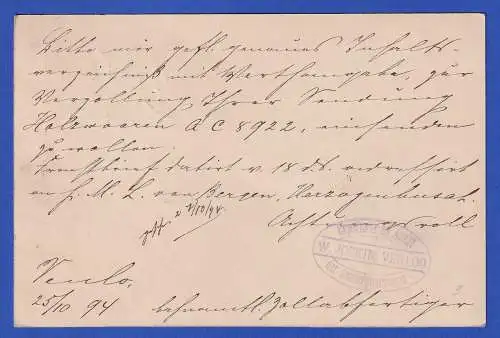 Bitte mir gefl. genaues Inhalts-
verzeichniß mit Werthangabe, zur
Verzollung Ihrer Sendung
Holzwaaren A C 8922, einsenden
zu wollen.
Frachtbrief datirt v. 18 ds. adressirt
an H. M. L. van Bergen, Herzogenbusch.
27/10/94
Achtungsvoll
VENLOO
Venlo,
25/10 94 Zollabfertiger